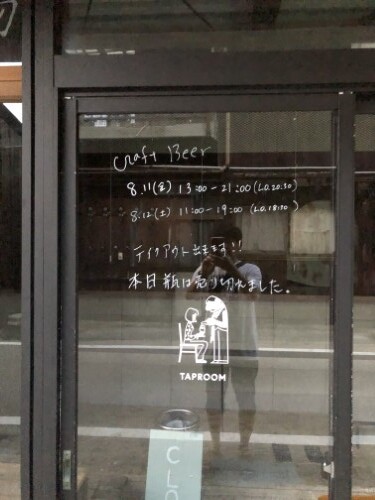 Craft Beer
8.11(金) 13:00-21:00 (L.O.20:30)
8.12(土) 11:00-19:00 (L.O.18:30)
テイクアウト出来ます!!
本日 瓶は売り切れました。
TAPROOM
CLO